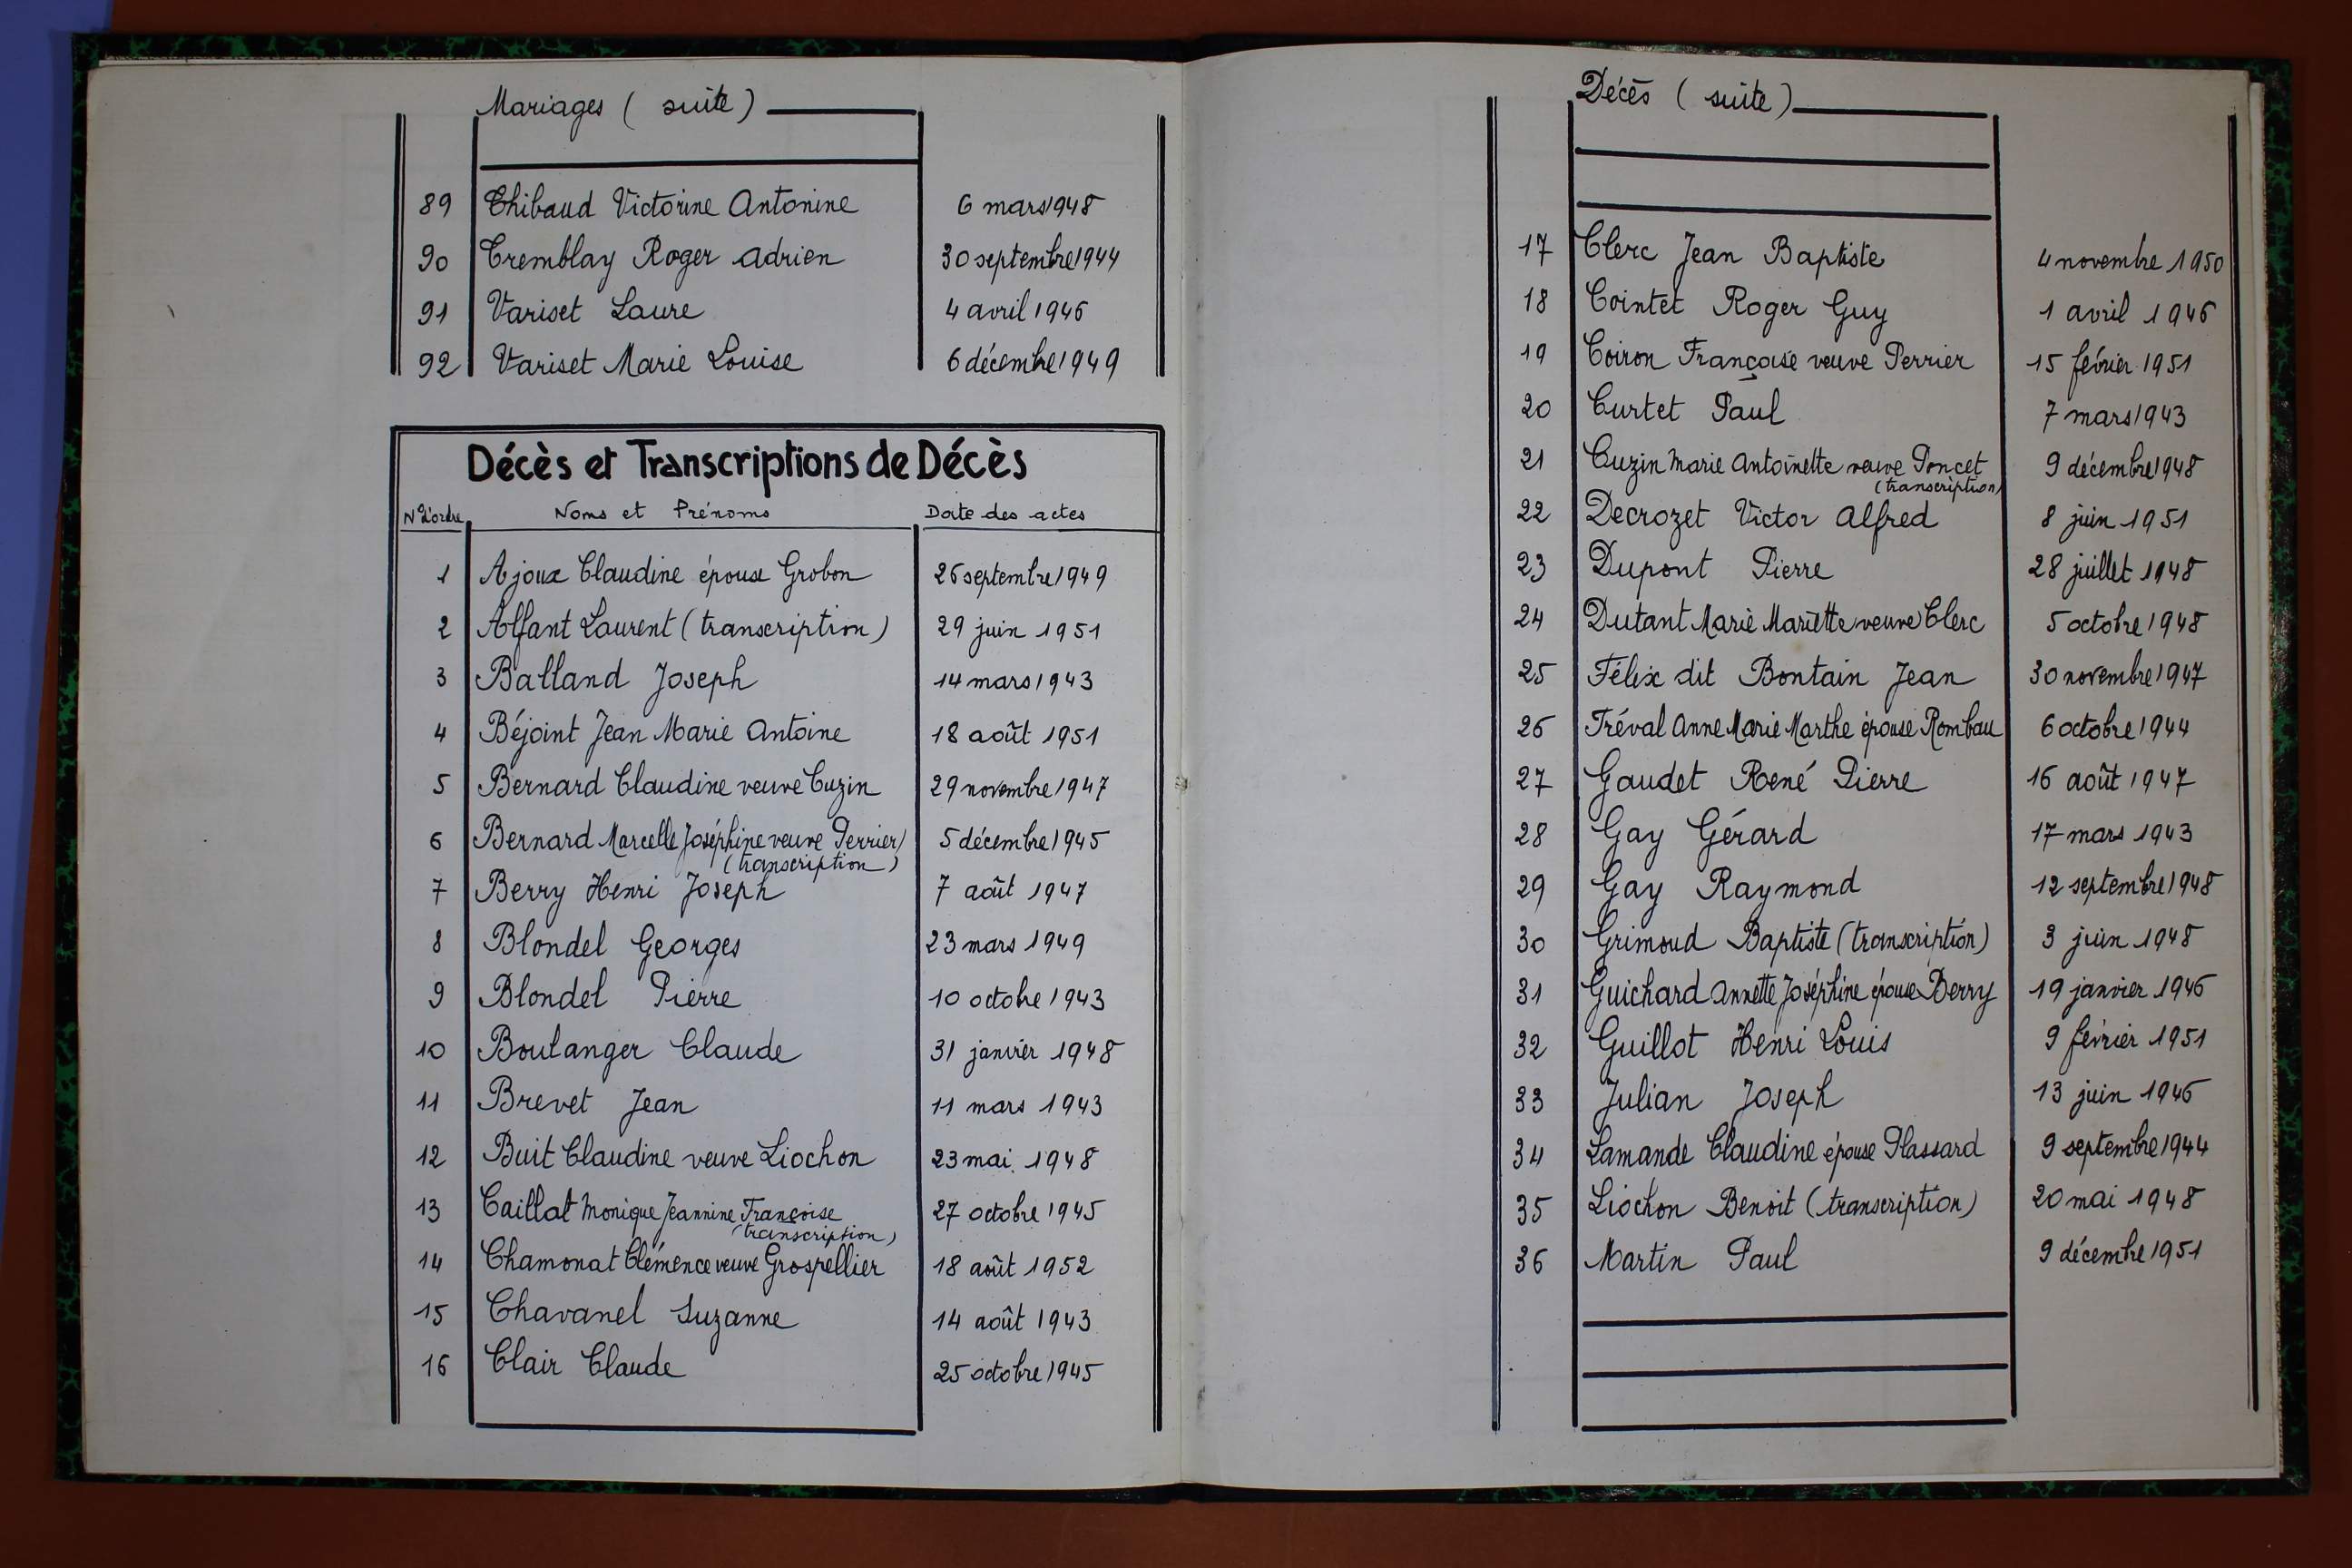 Mariages ( suite )
89 Thibaud Victorine Antonine 6 mars 1948
90 Tremblay Roger Adrien 30 septembre 1944
91 Variset Laure 4 avril 1946
92 Variset Marie Louise 6 décembre 1949
Décès et Transcriptions de Décès
N° d'ordre Noms et Prénoms Date des actes
1 Ajoux Claudine épouse Grobon 26 septembre 1949
2 Alfant Laurent (transcription) 29 juin 1951
3 Balland Joseph 14 mars 1943
4 Béjoint Jean Marie Antoine 18 août 1951
5 Bernard Claudine veuve Cuzin 29 novembre 1947
6 Bernard Marcelle Joséphine veuve Perrier 5 décembre 1945
(transcription)
7 Berry Henri Joseph 7 août 1947
8 Blondel Georges 23 mars 1949
9 Blondel Pierre 10 octobre 1943
10 Boulanger Claude 31 janvier 1948
11 Brevet Jean 11 mars 1943
12 Buit Claudine veuve Liochon 23 mai 1948
13 Caillat Monique Jeannine Françoise 27 octobre 1945
(transcription)
14 Chamonat Clémence veuve Grospellier 18 août 1952
15 Chavanel Suzanne 14 août 1943
16 Clair Claude 25 octobre 1945
Décès ( suite )
17 Clerc Jean Baptiste 4 novembre 1950
18 Cointet Roger Guy 1 avril 1946
19 Coiron Françoise veuve Perrier 15 février 1951
20 Curtet Paul 7 mars 1943
21 Cuzin Marie Antoinette veuve Poncet 9 décembre 1948
(transcription)
22 Decrozet Victor Alfred 8 juin 1951
23 Dupont Pierre 28 juillet 1948
24 Dutant Marie Mariette veuve Clerc 5 octobre 1948
25 Félix dit Bontain Jean 30 novembre 1947
26 Fréval Anne Marie Marthe épouse Rombau 6 octobre 1944
27 Gaudet René Pierre 16 août 1947
28 Gay Gérard 17 mars 1943
29 Gay Raymond 12 septembre 1948
30 Grimoud Baptiste (transcription) 3 juin 1948
31 Guichard Annette Joséphine épouse Berry 19 janvier 1946
32 Guillot Henri Louis 9 février 1951
33 Julian Joseph 13 juin 1946
34 Lamande Claudine épouse Plassard 9 septembre 1944
35 Liochon Benoit (transcription) 20 mai 1948
36 Martin Paul 9 décembre 1951